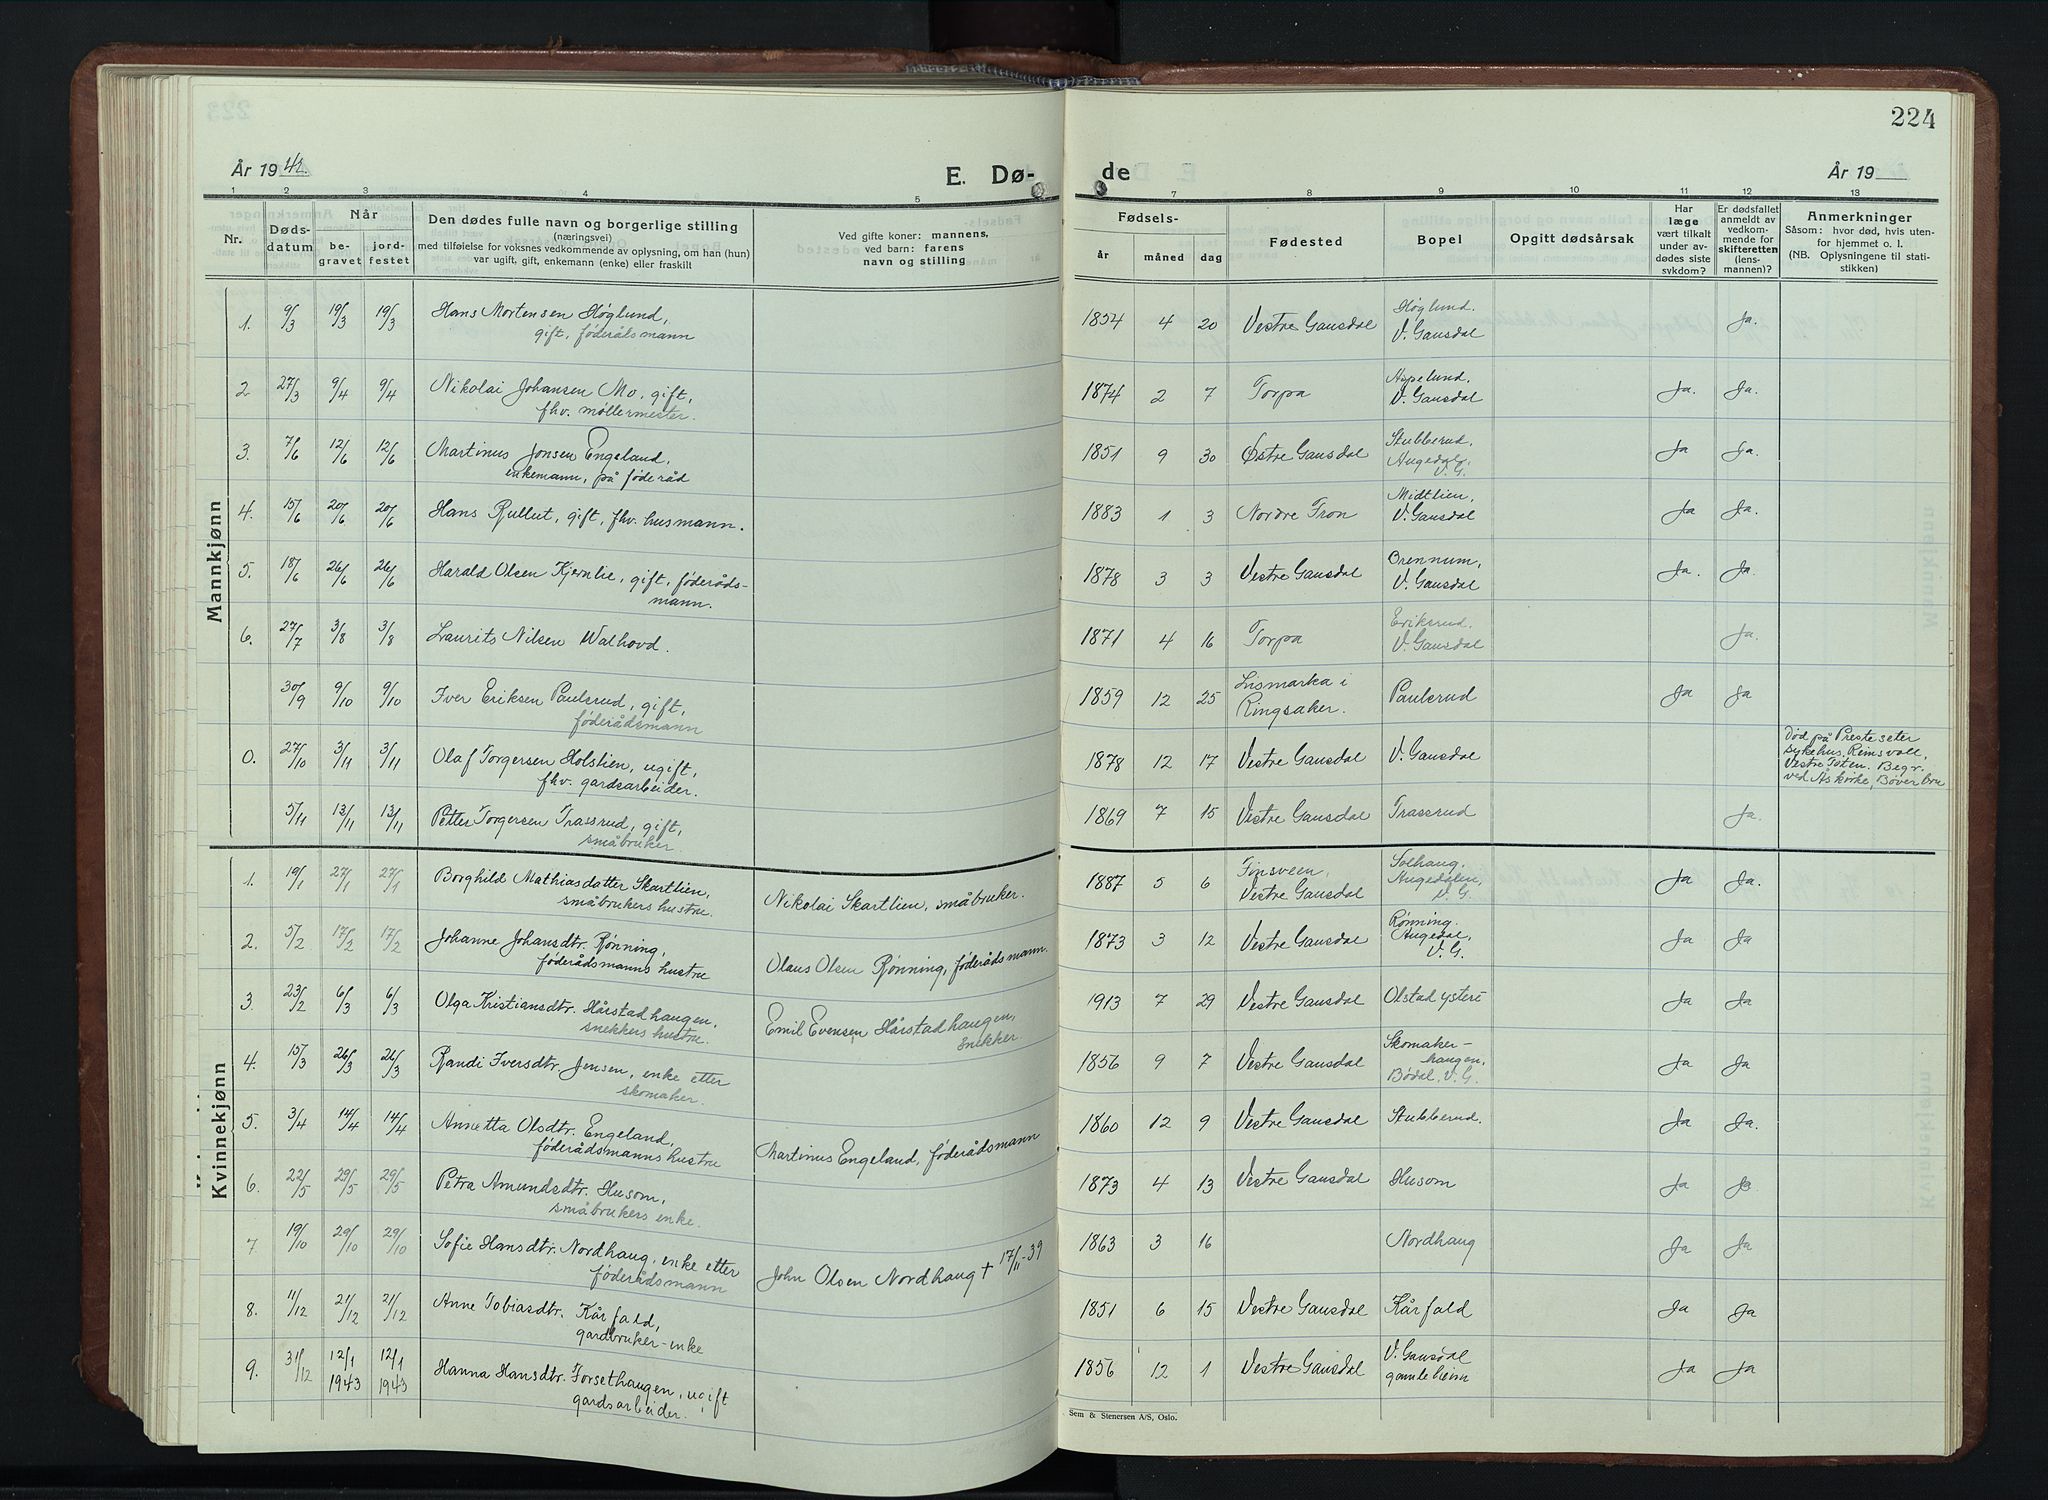 224
År 1942.
E. Dø-
de
År 19
1 2 3 4 5
7 8 9 10 11 12 13
Nr.
Døds-
datum
Når
be-
gravet
jord-
festet
Den dødes fulle navn og borgerlige stilling
(næringsvei)
med tilføielse for voksnes vedkommende av oplysning, om han (hun)
var ugift, gift, enkemann (enke) eller fraskilt
Ved gifte koner: mannens,
ved barn: farens
navn og stilling
Fødsels-
år
måned
dag
Fødested
Bopel
Opgitt dødsårsak
Har
læge
vært tilkalt
under av-
dødes siste
sykdom?
Er dødsfallet
anmeldt av
vedkom-
mende for
skifteretten
(lens-
mannen)?
Anmerkninger
Såsom: hvor død, hvis uten-
for hjemmet o. l.
(NB. Oplysningene til stati-
stikken)
Mannkjønn
1. 9/3 19/3 19/3 Hans Mortensen Høglund,
gift, føderådsmann
1854 4 20 Vestre Gausdal Høglund.
V. Gausdal
Ja.
2 27/3 9/4 9/4 Nikolai Johansen Mo, gift,
fhv. møllermester.
1874 2 7 Torpa Aspelund.
V. Gausdal
Ja. Ja.
3. 7/6 12/6 12/6 Martinus Jonsen Engeland,
enkemann, på føderåd
1851 9 30 Østre Gausdal Stubberud,
Augedal,
V. G.
Ja Ja.
4. 15/6 20/6 20/6 Hans Rullut, gift, fhv. husmann.
1883 1 3 Nordre Fron Midtlien,
V. Gausdal
Ja Ja.
5. 18/6 26/6 26/6 Harald Olsen Kjernlie, gift, føderåds-
mann.
1878 3 3 Vestre Gausdal Ørennum,
V. Gausdal
Ja. Ja.
6. 27/7 3/8 3/8 Laurits Nilsen Walhovd.
1871 4 16 Torpa Eriksrud.
V. Gausdal
Ja.
30/9 9/10 9/10 Iver Eriksen Paulsrud, gift,
føderådsmann
1859 12 25 Lismarka i
Ringsaker.
Paulsrud Ja Ja
0. 27/10 3/11 3/11 Olaf Torgersen Holslien, ugift,
fhv. gardsarbeider.
1878 12 17 Vestre Gausdal V. Gausdal
Død på Presteseter
sykehus, Reinsvoll,
Vestre Toten. Begr.
ved Ås kirke, Bøverbru
5/11 13/11 13/11 Petter Torgersen Trassrud, gift,
småbruker.
1869 7 15 Vestre Gausdal Trassrud Ja.
Kvinnekjønn
1. 19/1 27/1 27/1 Borghild Mathiasdatter Skartlien,
småbrukers hustru.
Nikolai Skartlien, småbruker.
1887 5 6 Finsveen,
Vestre Gausdal
Solhaug.
Augedalen,
V. G.
Ja Ja.
2. 5/2 17/2 17/2 Johanne Johansdtr. Rønning,
føderådsmanns hustru
Olaus Olsen Rønning, føderådsmann.
1873 3 12 Vestre Gausdal Rønning.
Augedal,
V. G.
Ja Ja
3. 23/2 6/3 6/3 Olga Kristiansdtr. Hårstadhaugen,
snekkers hustru.
Emil Evensen Hårstadhaugen,
snekker.
1913 7 29 Vestre Gausdal Olstad ysteri Ja Ja
4. 15/3 26/3 26/3 Randi Iversdtr. Jensen, enke etter
skomaker.
1856 9 7 Vestre Gausdal Skomaker-
haugen,
Bødal, V. G.
Ja Ja
5. 3/4 14/4 14/4 Annetta Olsdtr. Engeland,
føderådsmanns hustru
Martinus Engeland, føderådsmann
1860 12 9 Vestre Gausdal Stubberud. Ja Ja.
6. 22/5 29/5 29/5 Petra Amundsdtr. Husom,
småbrukers enke.
1873 4 13 Vestre Gausdal Husom Ja Ja
7 19/10 29/10 29/10 Sofie Hansdtr. Nordhaug, enke etter
føderådsmann
John Olsen Nordhaug † 17/11-39
1863 3 16 Nordhaug Ja Ja
8. 11/12 21/12 21/12 Anne Tobiasdtr. Kårfald,
gardbruker-enke
1851 6 15 Vestre Gausdal Kårfald Ja Ja
9. 31/12 12/1 1943 12/1 1943 Hanna Hansdtr. Forsethaugen, ugift
gardsarbeider.
1856 12 1 Vestre Gausdal V. Gausdal
gamleheim
Ja Ja
Sem & Stenersen A/S, Oslo.